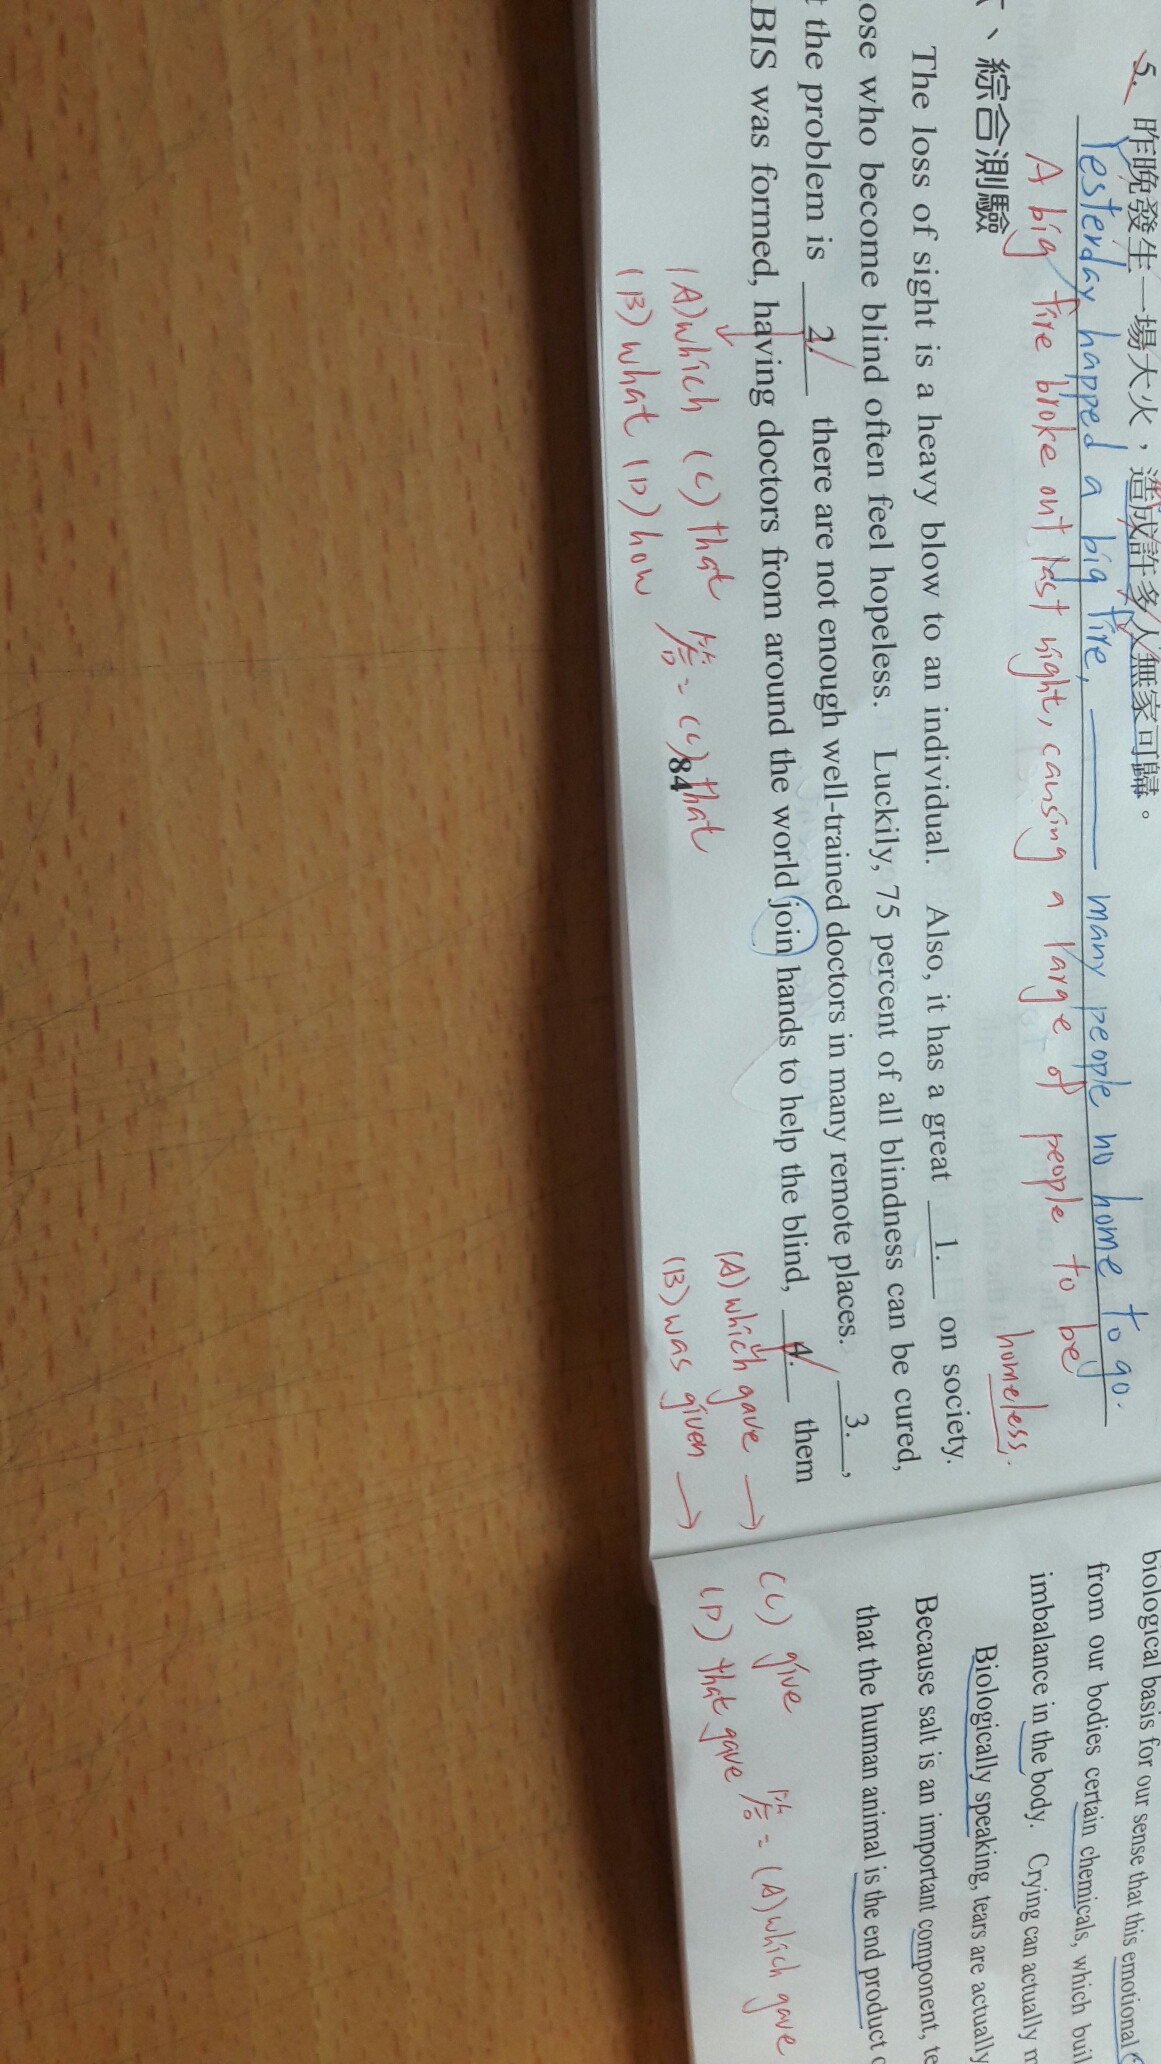 5. 昨晚發生一場大火，造成許多人無家可歸。
Yesterday happed a big fire, ____ many people no home to go.
A big fire broke out last night, causing a large of people to be
homeless.
、綜合測驗
The loss of sight is a heavy blow to an individual. Also, it has a great 1. on society.
ose who become blind often feel hopeless. Luckily, 75 percent of all blindness can be cured,
t the problem is 2. there are not enough well-trained doctors in many remote places. 3. ,
BIS was formed, having doctors from around the world join hands to help the blind, 4. them
(A) which (C) that 答=(C) that
(B) what (D) how
84
(A) which gave → (C) give 答=(A) which gave
(B) was given → (D) that gave
biological basis for our sense that this emotional
from our bodies certain chemicals, which buil
imbalance in the body. Crying can actually m
Biologically speaking, tears are actually
Because salt is an important component, te
that the human animal is the end product o